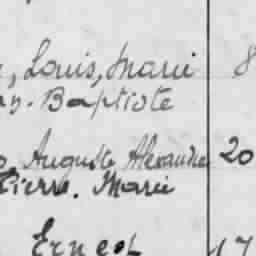 Louis, Marie 8
Baptiste
Auguste Alexandre 20
Pierre. Marie
Ernest 17